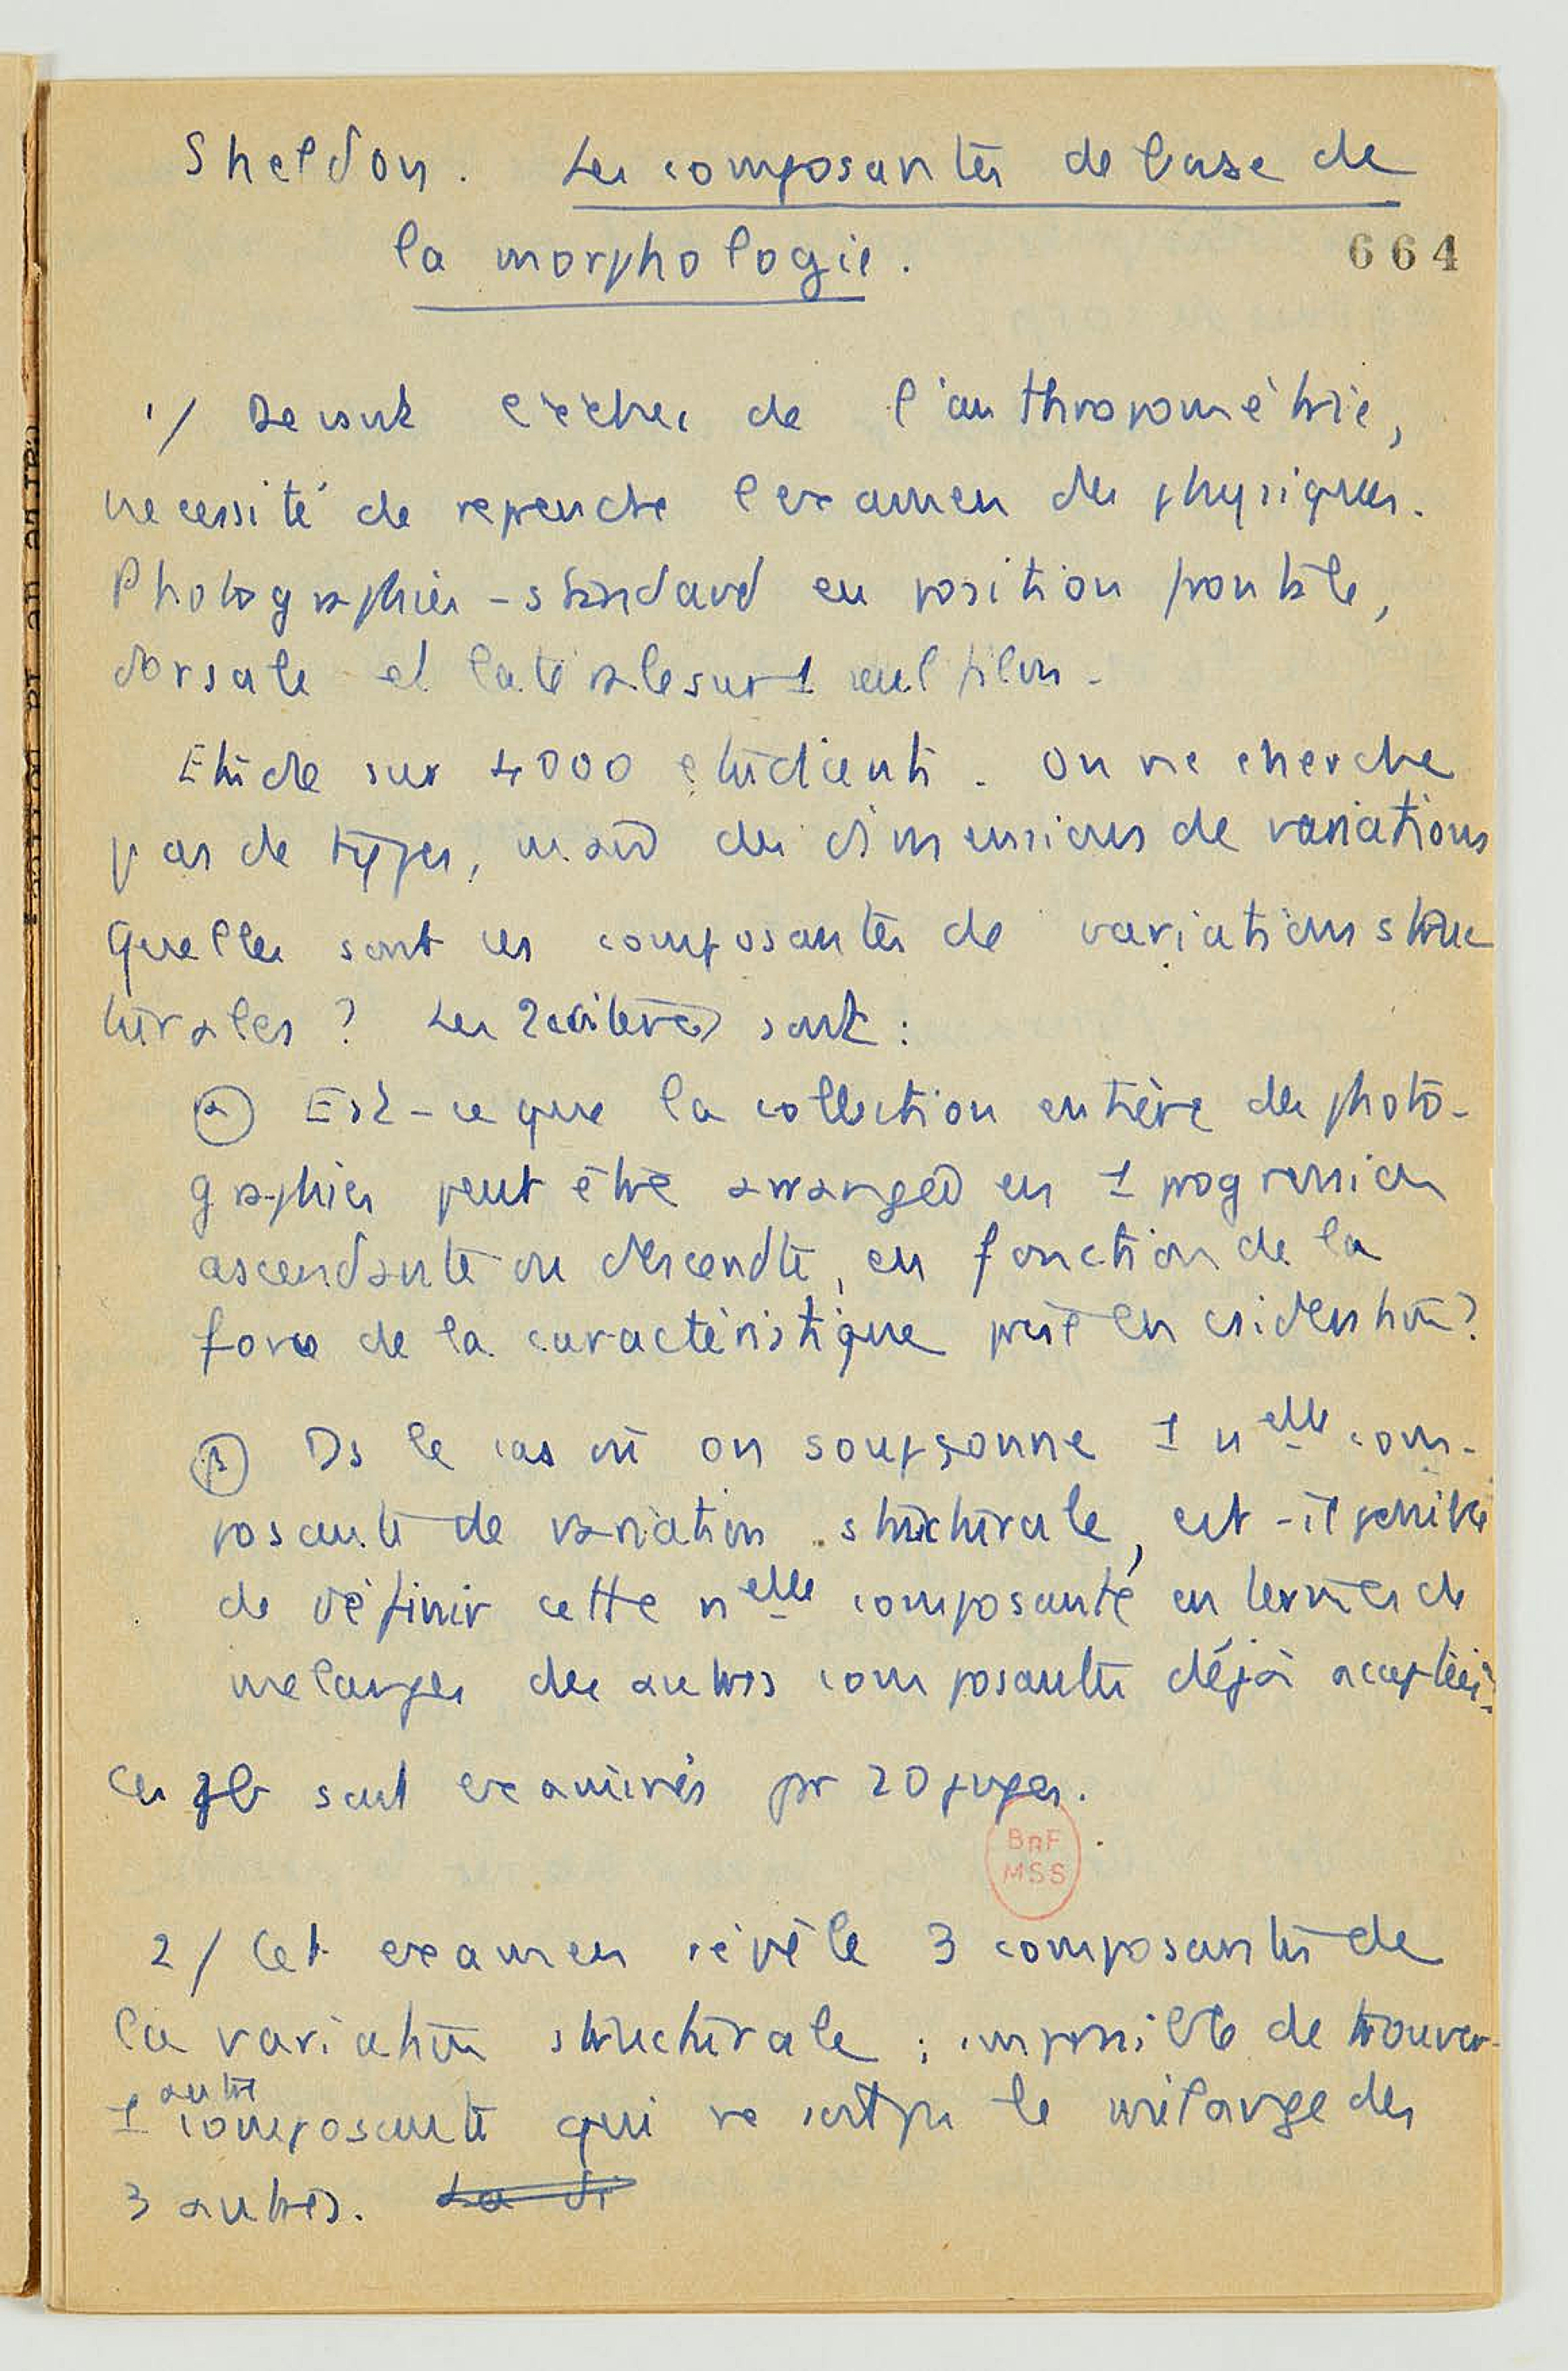 Sheldon. Les composantes de base de
la morphologie.
664
1/ Devant l'échec de l'anthropométrie,
necessité de reprendre l'examen des physiques.
Photographies-standard en position frontale,
dorsale et latérale sur 1 seul film.
Etude sur 4000 étudiants. On ne cherche
pas de types, mais des dimensions de variations
Quelles sont ces composantes de variations struc
turales ? Les 2 critères sont :
α Est-ce que la collection entière des photo-
graphies peut être arrangée en 1 progression
ascendante ou descendte, en fonction de la
force de la caractéristique prise en considération?
β Ds le cas où on soupçonne 1 nelle com-
posante de variation structurale, est-il possible
de définir cette nelle composante en termes de
melanges des autres composantes déjà acceptées?
Ces pb sont examinés pr 20 juges.
BnF
MSS
2/ Cet examen révèle 3 composantes de
la variation structurale ; impossible de trouver
autre
1 composante qui ne soit pr le mélange des
3 autres. La di